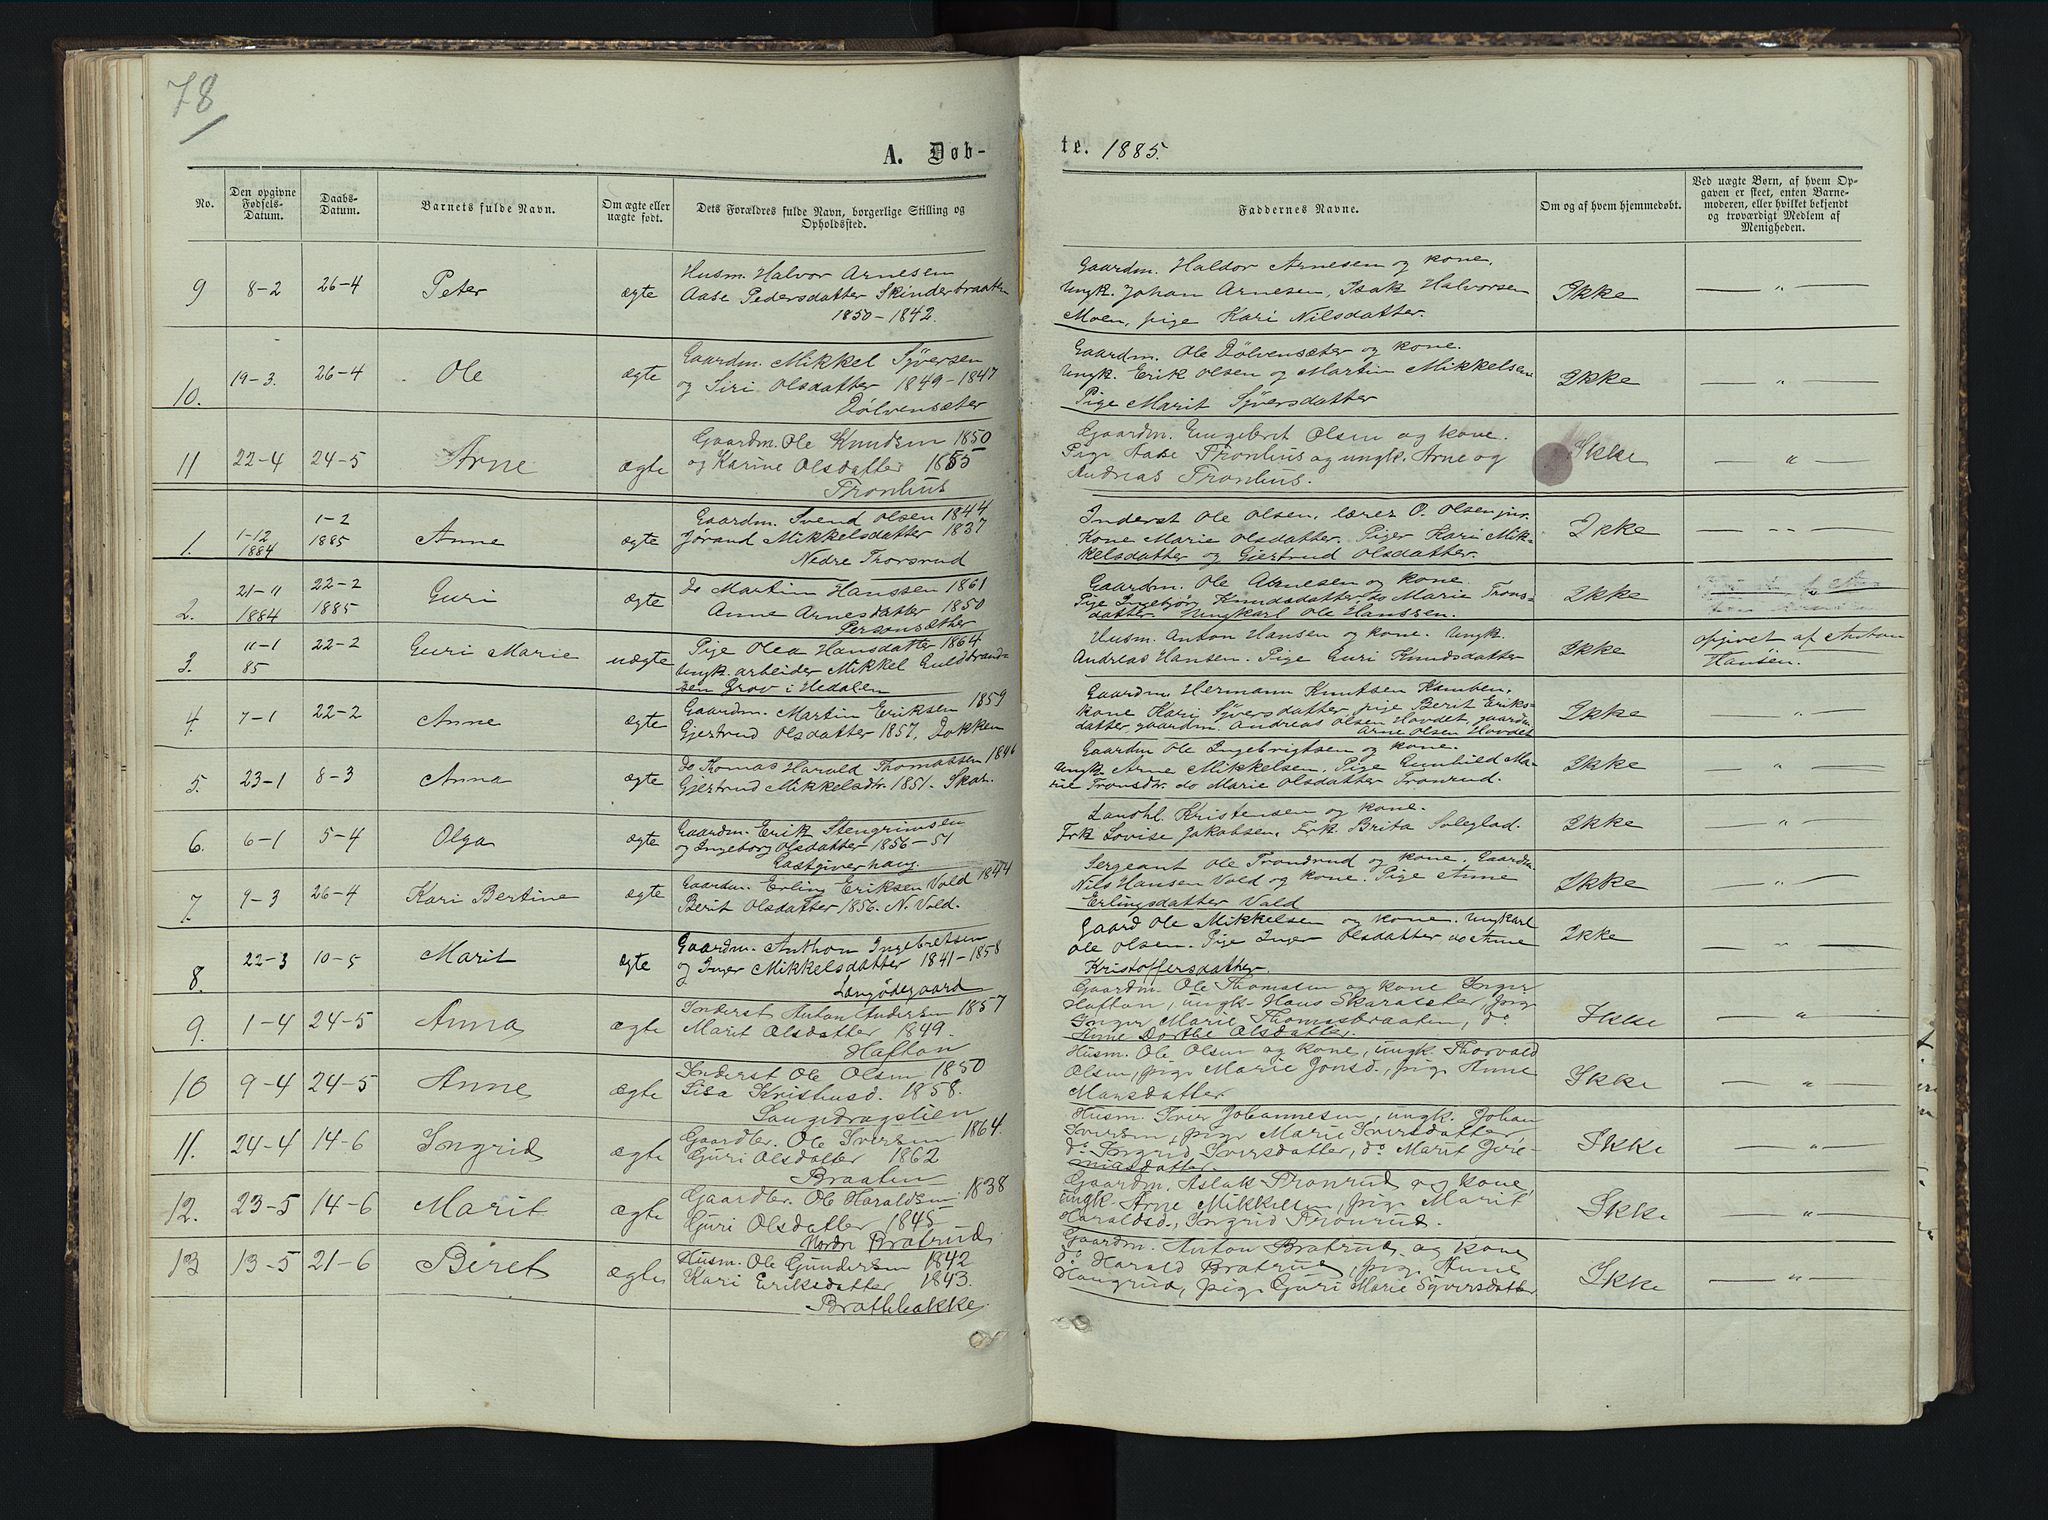 78
A. Døb-
te. 1885.
No.
Den opgivne Fødsels-Datum.
Daabs-Datum.
Barnets fulde Navn.
Om ægte eller uægte født.
Dets Forældres fulde Navn, borgerlige Stilling og Opholdssted.
Faddernes Navne.
Om og af hvem hjemmedøbt.
Ved uægte Børn, af hvem Opgaven er skeet, enten Barnemoderen, eller hvilket bekjendt og troværdigt Medlem af Menigheden.
9 8-2 26-4 Peter ægte
Husm. Halvor Arnesen
Aase Pedersdatter Skinderbraaten
1850-1842.
Gaardm. Haldor Arnesen og kone.
Ungk. Johan Arnesen, Isak Halvorsen
Moen, pige Kari Nilsdatter.
Ikke — " —
10. 19-3. 26-4 Ole ægte
Gaardm. Mikkel Syversen
og Siri Olsdatter 1849-1847
Dølvensæter
Gaardm. Ole Dølvensæter og kone.
Ungk. Erik Olsen og Martin Mikkelsen
Pige Marit Syversdatter
Ikke — " —
11 22-4 24-5 Arne ægte
Gaardm. Ole Knudsen 1850
og Karine Olsdatter 1855
Tronhus
Gaardm. Engebret Olsen og kone.
Pige Aase Tronhus og ungk. Arne og
Andreas Tronhus.
Ikke — " —
1. 1-12 1884 1-2 1885 Anne ægte
Gaardm. Svend Olsen 1844
Jørand Mikkelsdatter 1837
Nedre Thorsrud
Inderst Ole Olsen, lærer O. Olsen jnr.
Kone Marie Olsdatter. Piger Kari Mik-
kelsdatter og Gjertrud Olsdatter.
Ikke — " —
2. 21-11 1884 22-2 1885 Guri ægte
do Martin Hanssen 1861
Anne Arnesdatter 1850
Personsæther
Gaardm. Ole Arnesen og kone.
Pige Ingebjør Knudsdatter do Marie Trons-
datter. Ungkarl Ole Hanssen.
Ikke
3. 11-1 85 22-2 Guri Marie uægte
Pige Olea Hansdatter 1864.
Ungk. arbeider Mikkel Guldbrand-
sen Grov i Hedalen
Husm. Anton Hansen og kone. Ungk.
Andreas Hansen. Pige Guri Knudsdatter
Ikke
opgivet af Anton
Hansen.
4. 7-1 22-2 Anne ægte
Gaardm. Martin Eriksen 1859
Gjertrud Olsdatter 1857. Dokken
Gaardm. Hermann Knutsen Kamben,
kone Kari Syversdatter, pige Berit Eriks-
datter, gaardm. Andreas Olsen Hovdet, gaardm
Arne Olsen Hovdet
Ikke — " —
5. 23-1 8-3 Anna ægte
do Thomas Harald Thomassen 1846
Gjertrud Mikkelsdtr. 1851. Skar.
Gaardm Ole Ingebrigtsen og kone.
Ungk. Arne Mikkelsen. Pige Gunhild Ma-
rie Tronsdtr. do Marie Olsdatter Tronrud.
Ikke — " —
6. 6-1 5-4 Olga ægte
Gaardm. Erik Stengrimsen
og Ingeborg Olsdatter 1856-51
Gastgiverhaug.
Landhl. Kristensen og kone.
Frk Lovise Jakobsen, Frk. Brita Soleglad.
Ikke — " —
7. 9-3 26-4 Kari Bertine ægte
Gaardm. Erling Eriksen Vold 1844
Berit Olsdatter 1856. N. Vold.
Sergeant Ole Trondrud og kone. Gaardm.
Nils Hansen Vold og kone. Pige Anne
Erlingsdatter Vald
Ikke — " —
8. 22-3 10-5 Marit ægte
Gaardm. Anthon Ingebretsen
og Inger Mikkelsdatter 1841-1858
Langødegaard
Gaard Ole Mikkelsen og kone. Ungkarl
Ole Olsen. Pige Inger Olsdatter do Anne
Kristoffersdatter.
Ikke — " —
9. 1-4 24-5 Anna ægte
Inderst Anton Andersen 1857
Marit Olsdatter 1849.
Hafton
Gaardm. Ole Thomsten og kone Inger
Hafton, ungk. Hans Skaraister, pig.
Inger Marie Thomasbraaten, do
Anne Dorthe Olsdatter.
Ikke — " —
10 9-4 24-5 Anne ægte
Inderst Ole Olsen 1850
Lisa Kristusd. 1858.
Langedragstien
Husm. Ole Olsen og kone, ungk. Thorvald
Olsen, pig. Marie Jonsd., pig. Anne
Mansdatter.
Ikke — " —
11. 24-4 14-6 Ingrid ægte
Gaardbr. Ole Iversen 1864.
Guri Olsdatter 1862
Braaten
Husm. Iver Johannesen, ungk. Johan
Iversen, pig. Marie Iversdatter
do Ingrid Iversdatter, do Marit Jere-
miasdatter.
Ikke — " —
12. 23-5 14-6 Marit ægte
Gaardbr. Ole Haraldsen 1838
Guri Olsdatter 1845
Nordre Bratrud
Gaardm. Aslak Tronrud og kone,
ungk. Arne Mikkelsen, pig. Marit
Haraldsd., Ingrid Tronrud.
Ikke — " —
13 13-5 21-6 Beret ægte
Husm. Ole Gundersen 1842
Kari Eriksdatter 1843.
Brathbakke.
Gaardm. Anton Bratrud og kone
do Harald Bratrud, pig. Anne
Haugrud, pig. Guri Marie Syversdatter
Ikke — " —